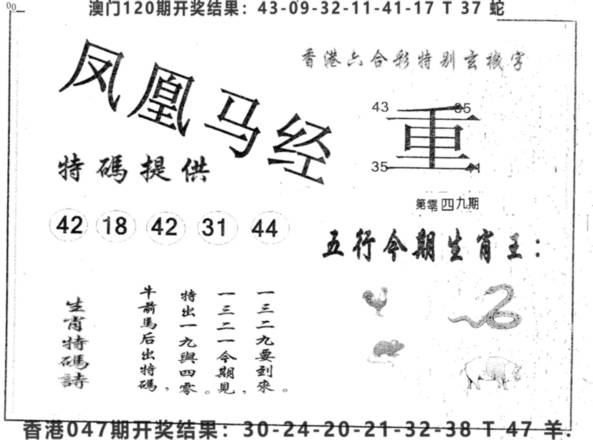 澳门120期开奖结果：43-09-32-11-41-17 T 37 蛇
香港六合彩特别玄機字
凤凰马经
43
35
重
35
第零四九期
特碼提供
42 18 42 31 44
五行今期生肖王：
一三二九要到來。
一三二一今期見，
特出一九與四零。
牛前馬后出特碼，
生肖特碼詩
香港047期开奖结果：30-24-20-21-32-38 T 47 羊.